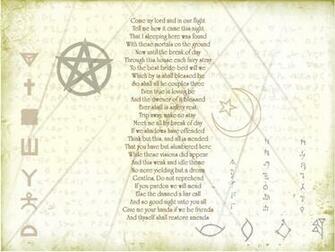 Come my lord and in our flight
Tell me how it came this night
That I sleeping here was found
With these mortals on the ground
Now until the break of day
Through this house each fairy stray
To the best bride-bed will we
Which by us shall blessed be
So shall all he couples three
Ever true in loving be
And the owner of it blessed
Ever shall in safety rest
Trip away, make no stay
Meet me all by break of day
If we shadows have offended
Think but this, and all is mended
That you have but slumbered here
While these visions did appear
And this weak and idle theme
No more yielding but a dream
Gentles, Do not reprehend
If you pardon we will mend
Else the
a liar call
And so good night unto you all
Give me your hands if we be friends
And
shall restore amends